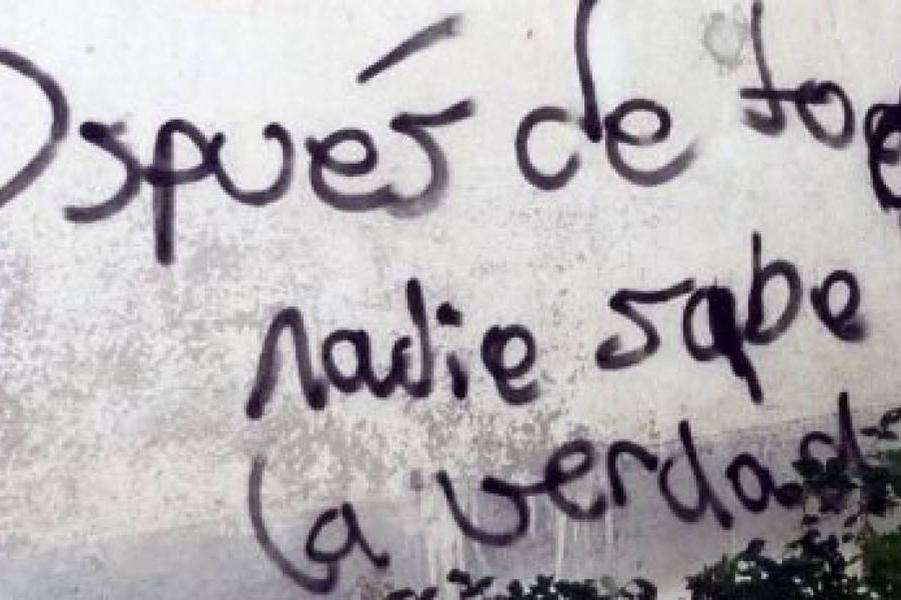 Dspués de to
Nadie sabe
la verdad